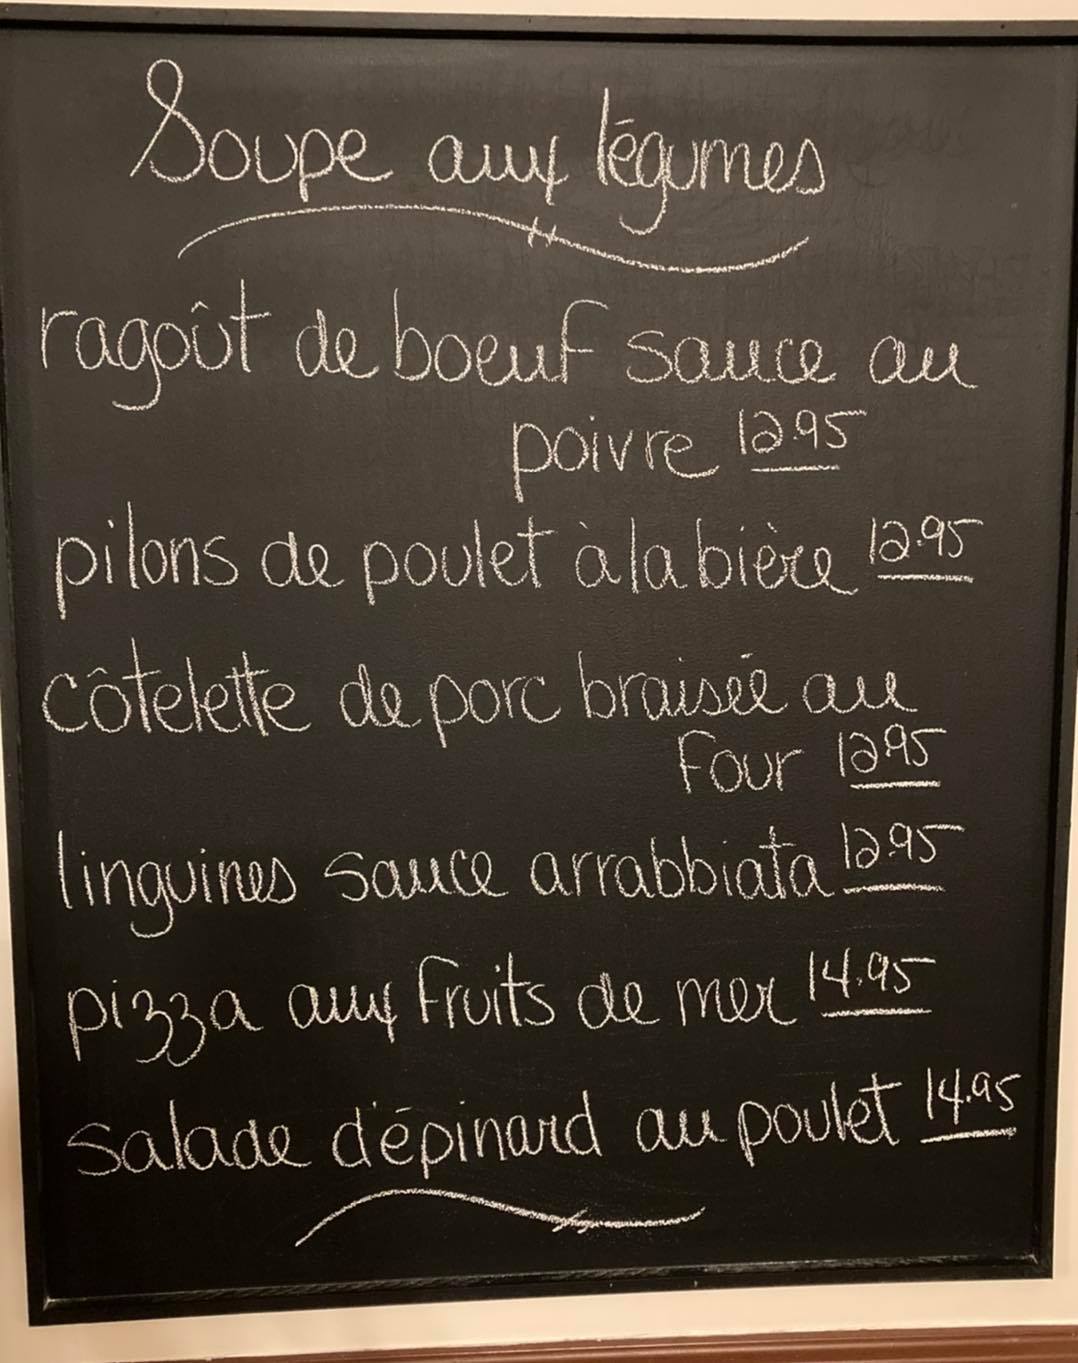 Soupe aux légumes
ragoût de boeuf sauce au
poivre 12.95
pilons de poulet à la bière 12.95
côtelette de porc braisée au
four 12.95
linguines sauce arrabbiata 12.95
pizza aux fruits de mer 14.95
salade d'épinard au poulet 14.95